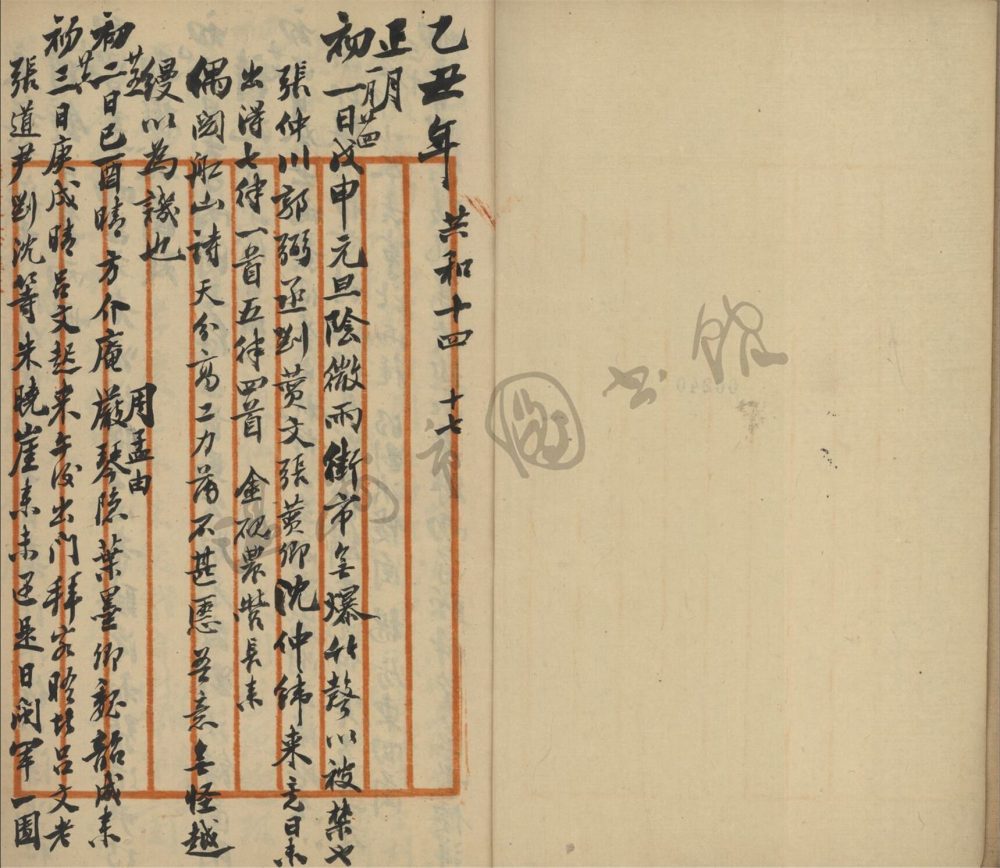 乙丑年 共和十四 十七
正月 一月廿四
初一日戊申元旦陰微雨街市無爆竹聲以被禁也
張仲川郭弼丞劉蓂文張蓂卿沈仲緯來竟日未
出得七律一首五律四首 金硯農營長來
偶閱船山詩天分高工力薄不甚愜吾意無怪越
縵以為譏也
初二日己酉晴方介庵嚴琴隱葉墨卿 韶成來
周孟由
初三日庚戌晴呂文起來午後出門拜客晤 呂文老
張道尹劉沈等朱曉崖來未遇是日 一圍